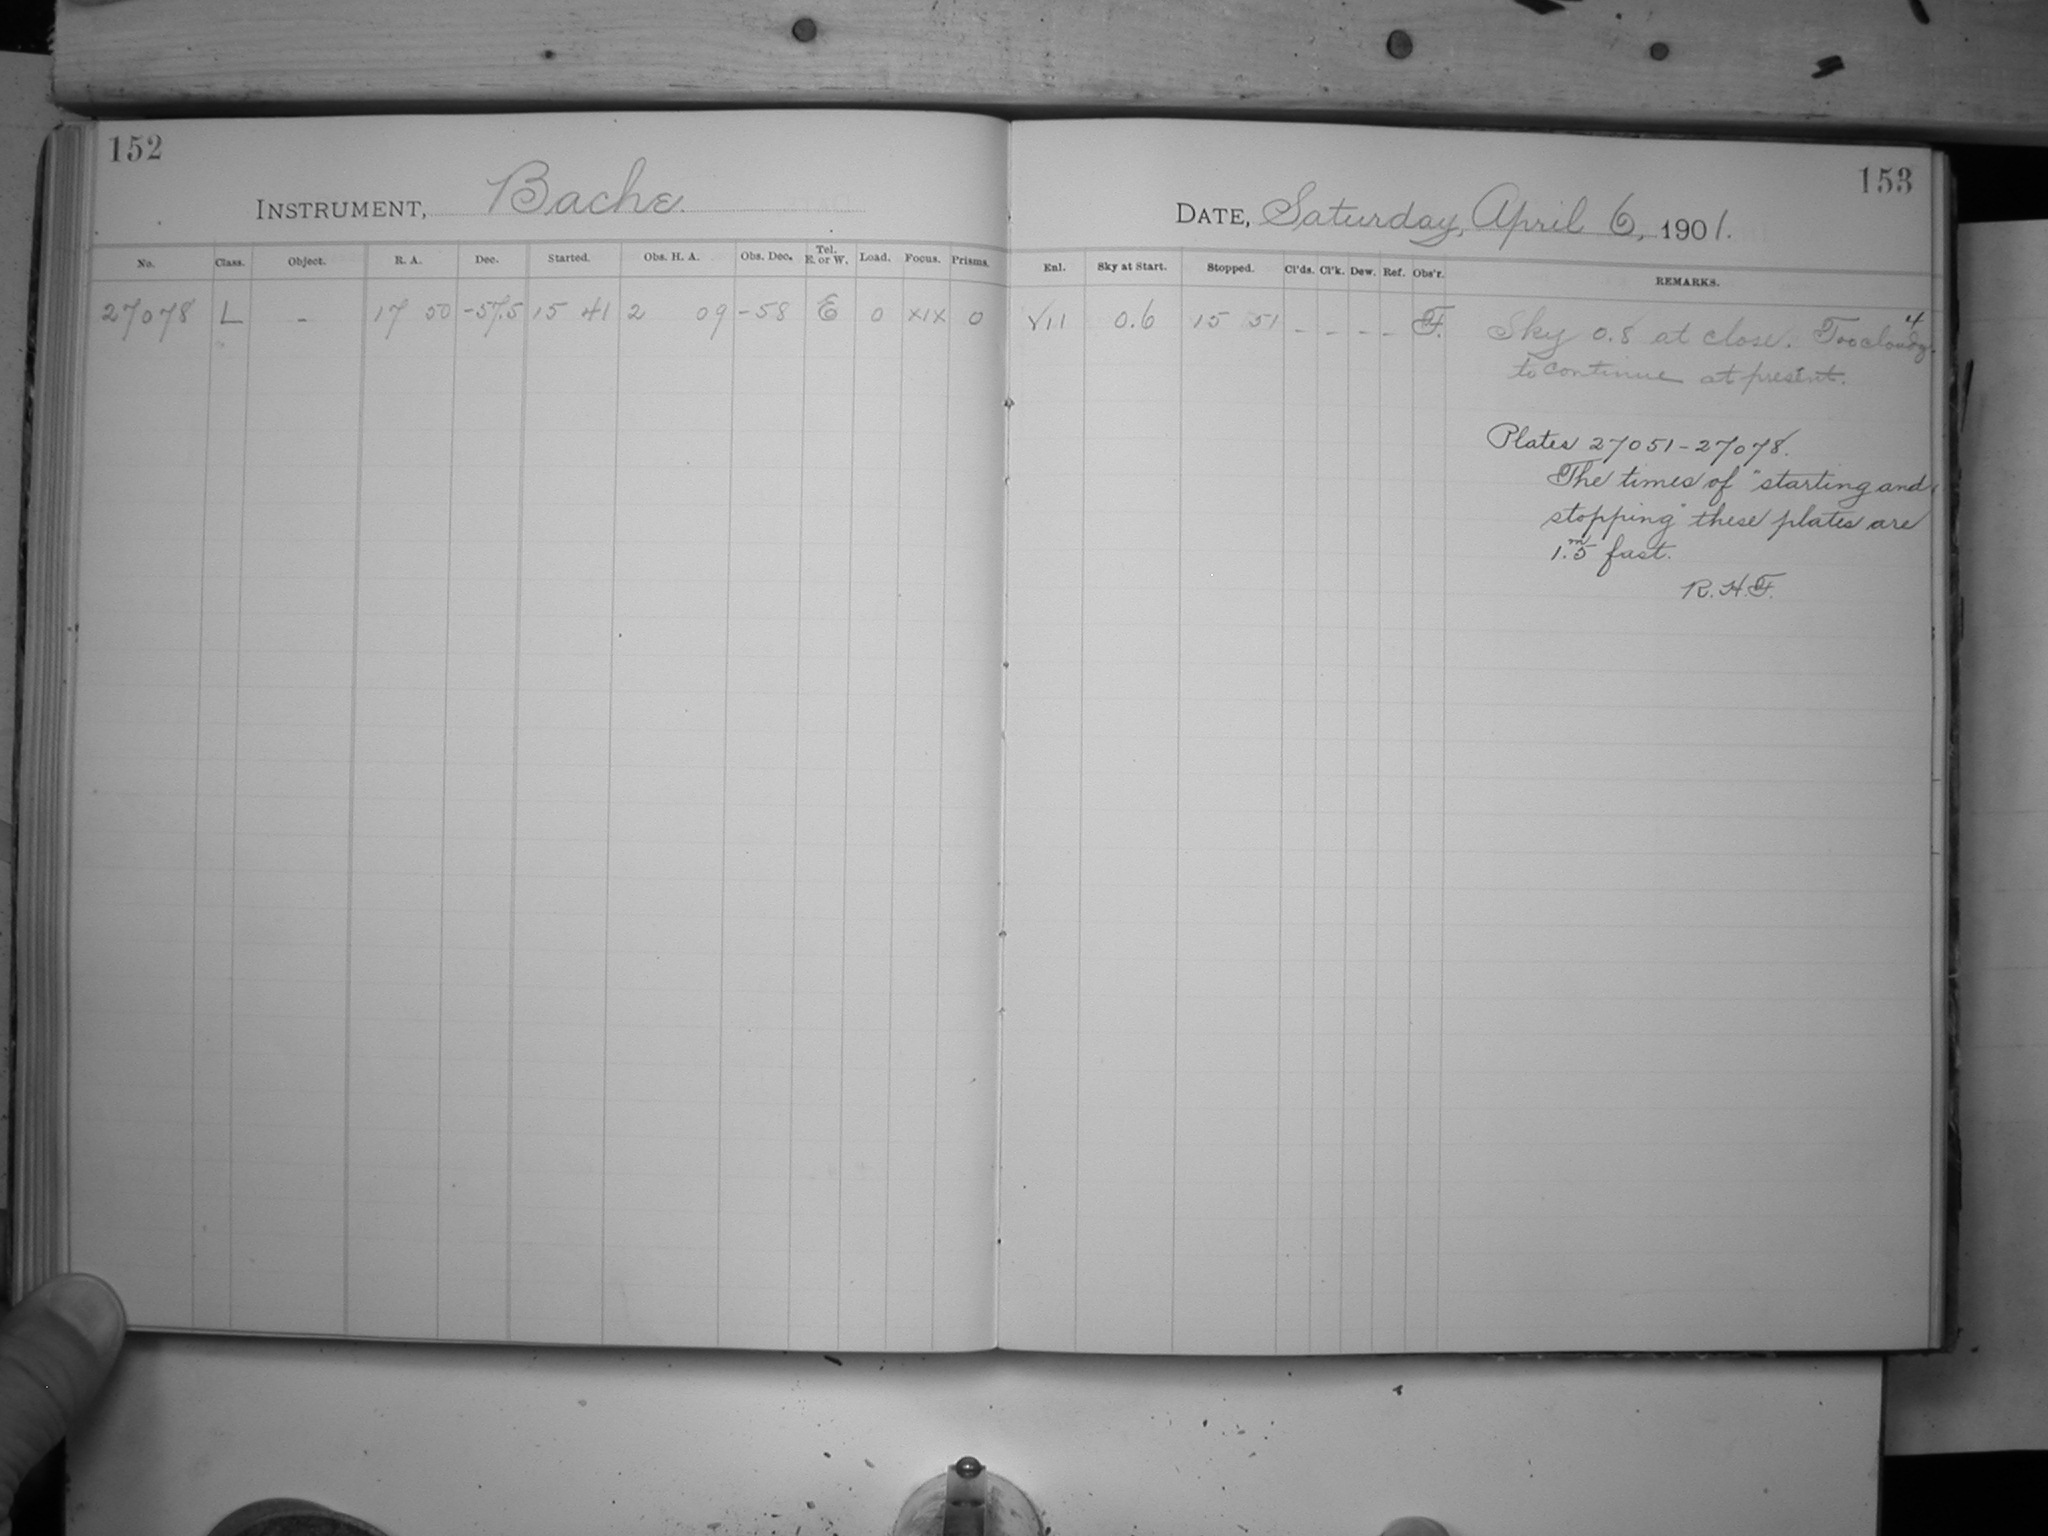 152
INSTRUMENT, Bache.
No. Class. Object. R. A. Dec. Started. Obs. H. A. Obs. Dec. Tel. E. or W. Load. Focus. Prisms.
27078 L - 17 50 -57.5 15 41 2 09 -58 E 0 XIX 0
153
DATE, Saturday, April 6, 1901.
Enl. Sky at Start. Stopped. Cl'ds. Cl'k. Dew. Ref. Obs'r. REMARKS.
VII 0.6 15 51 - - - - F. Sky 0.8 at close. Too cloudy 4
to continue at present.
Plates 27051-27078.
The times of "starting and
stopping" these plates are
1.m5 fast.
R.H.F.